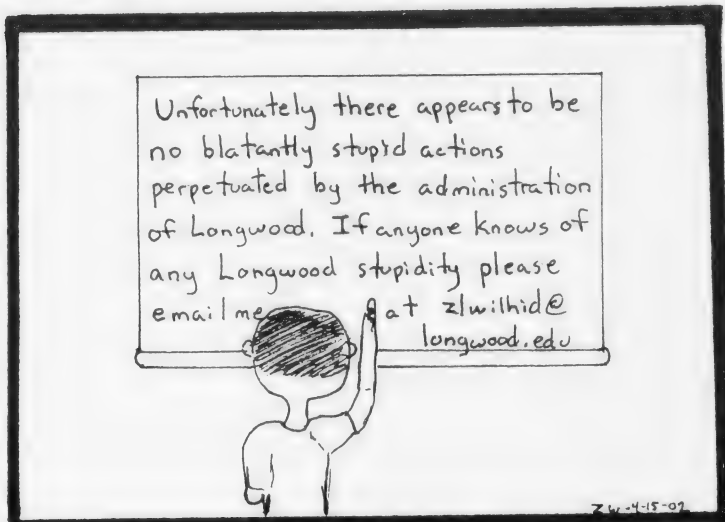 Unfortunately there appears to be
no blatantly stupid actions
perpetuated by the administration
of Longwood. If anyone knows of
any Longwood stupidity please
email me at zlwilhid@
longwood.edu
ZW-4-15-02